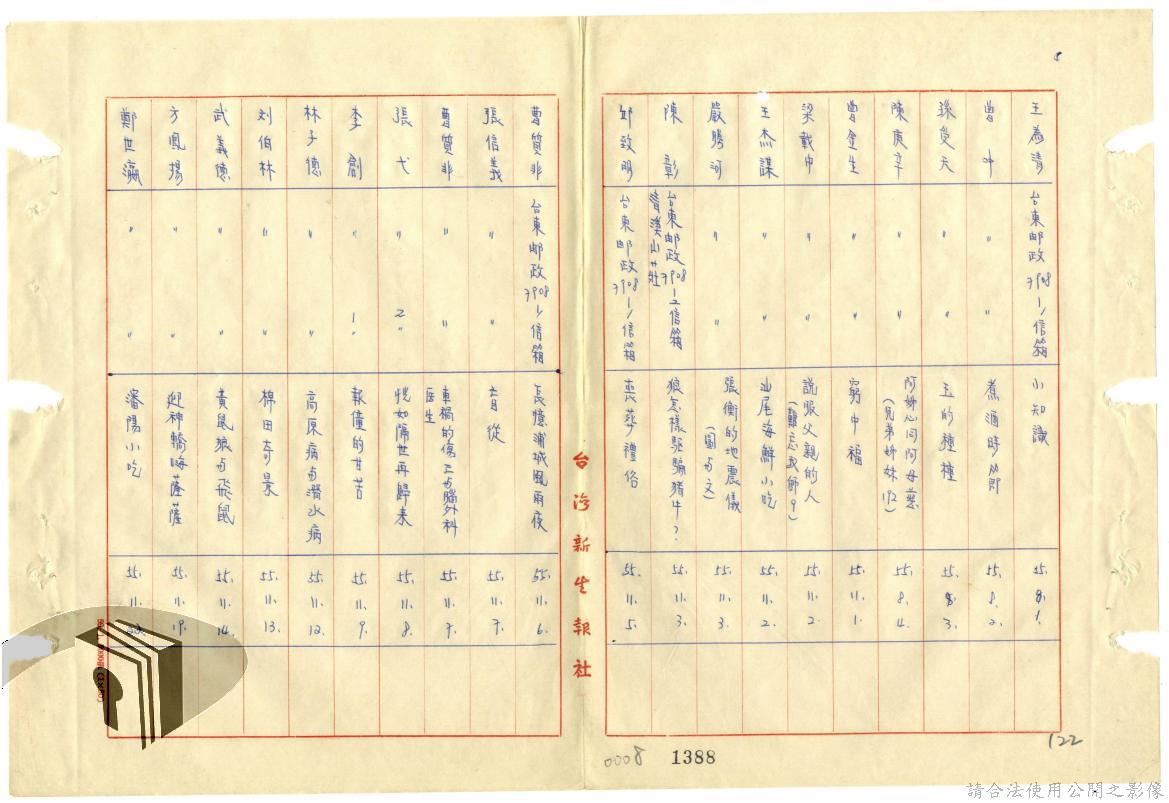 5
王為清 台東郵政7908-1/信箱 小知識 55. 8. 1.
曾 〃 〃 煮酒時節 55. 8. 2.
孫 元 〃 〃 玉的種種 55. 8. 3.
陳庚辛 〃 〃 阿姊心同阿母慈
(兄弟姊妹 ) 55. 8. 4.
曾金生 〃 〃 窮中福 55. 11. 1.
梁載中 〃 〃 說張父親的人
(難忘 師9) 55. 11. 2.
王杰謀 〃 〃 汕尾海鮮小吃 55. 11. 2.
嚴勝河 〃 〃 張衡的地震儀
(圖与文) 55. 11. 3.
陳彰 台東郵政7908-2信箱
清溪山莊 狼怎樣驅騙豬牛? 55. 11. 3.
邱致明 台東郵政7908-1/信箱 喪葬禮俗 55. 11. 5.
台灣新生報社
曹質非 台東郵政7908-1/信箱 長憶浦城風雨夜 55. 11. 6.
張信義 〃 〃 盲從 55. 11. 7.
曹質非 〃 〃 車禍的傷亡与腦外科
医生 55. 11. 7.
張弋 〃 2〃 恍如隔世再歸來 55. 11. 8.
李創 〃 1〃 報僮的甘苦 55. 11. 9.
林子德 〃 〃 高原病与潛水病 55. 11. 12.
刘伯林 〃 〃 棉田奇景 55. 11. 13.
武義德 〃 〃 黃鼠狼与飛鼠 55. 11. 14.
方鳳揚 〃 〃 迎神轎嗨薩薩 55. 11. 19.
鄭世瀛 〃 〃 瀋陽小吃 55. 11.
0008 1388
122
請合法使用公開之影像